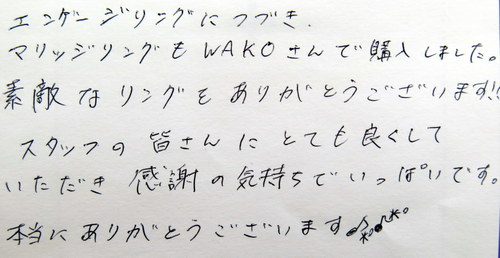 エンゲージリングにつづき、
マリッジリングもWAKOさんで購入しました。
素敵なリングをありがとうございます!!
スタッフの皆さんにとても良くして
いただき感謝の気持ちでいっぱいです。
本当にありがとうございます